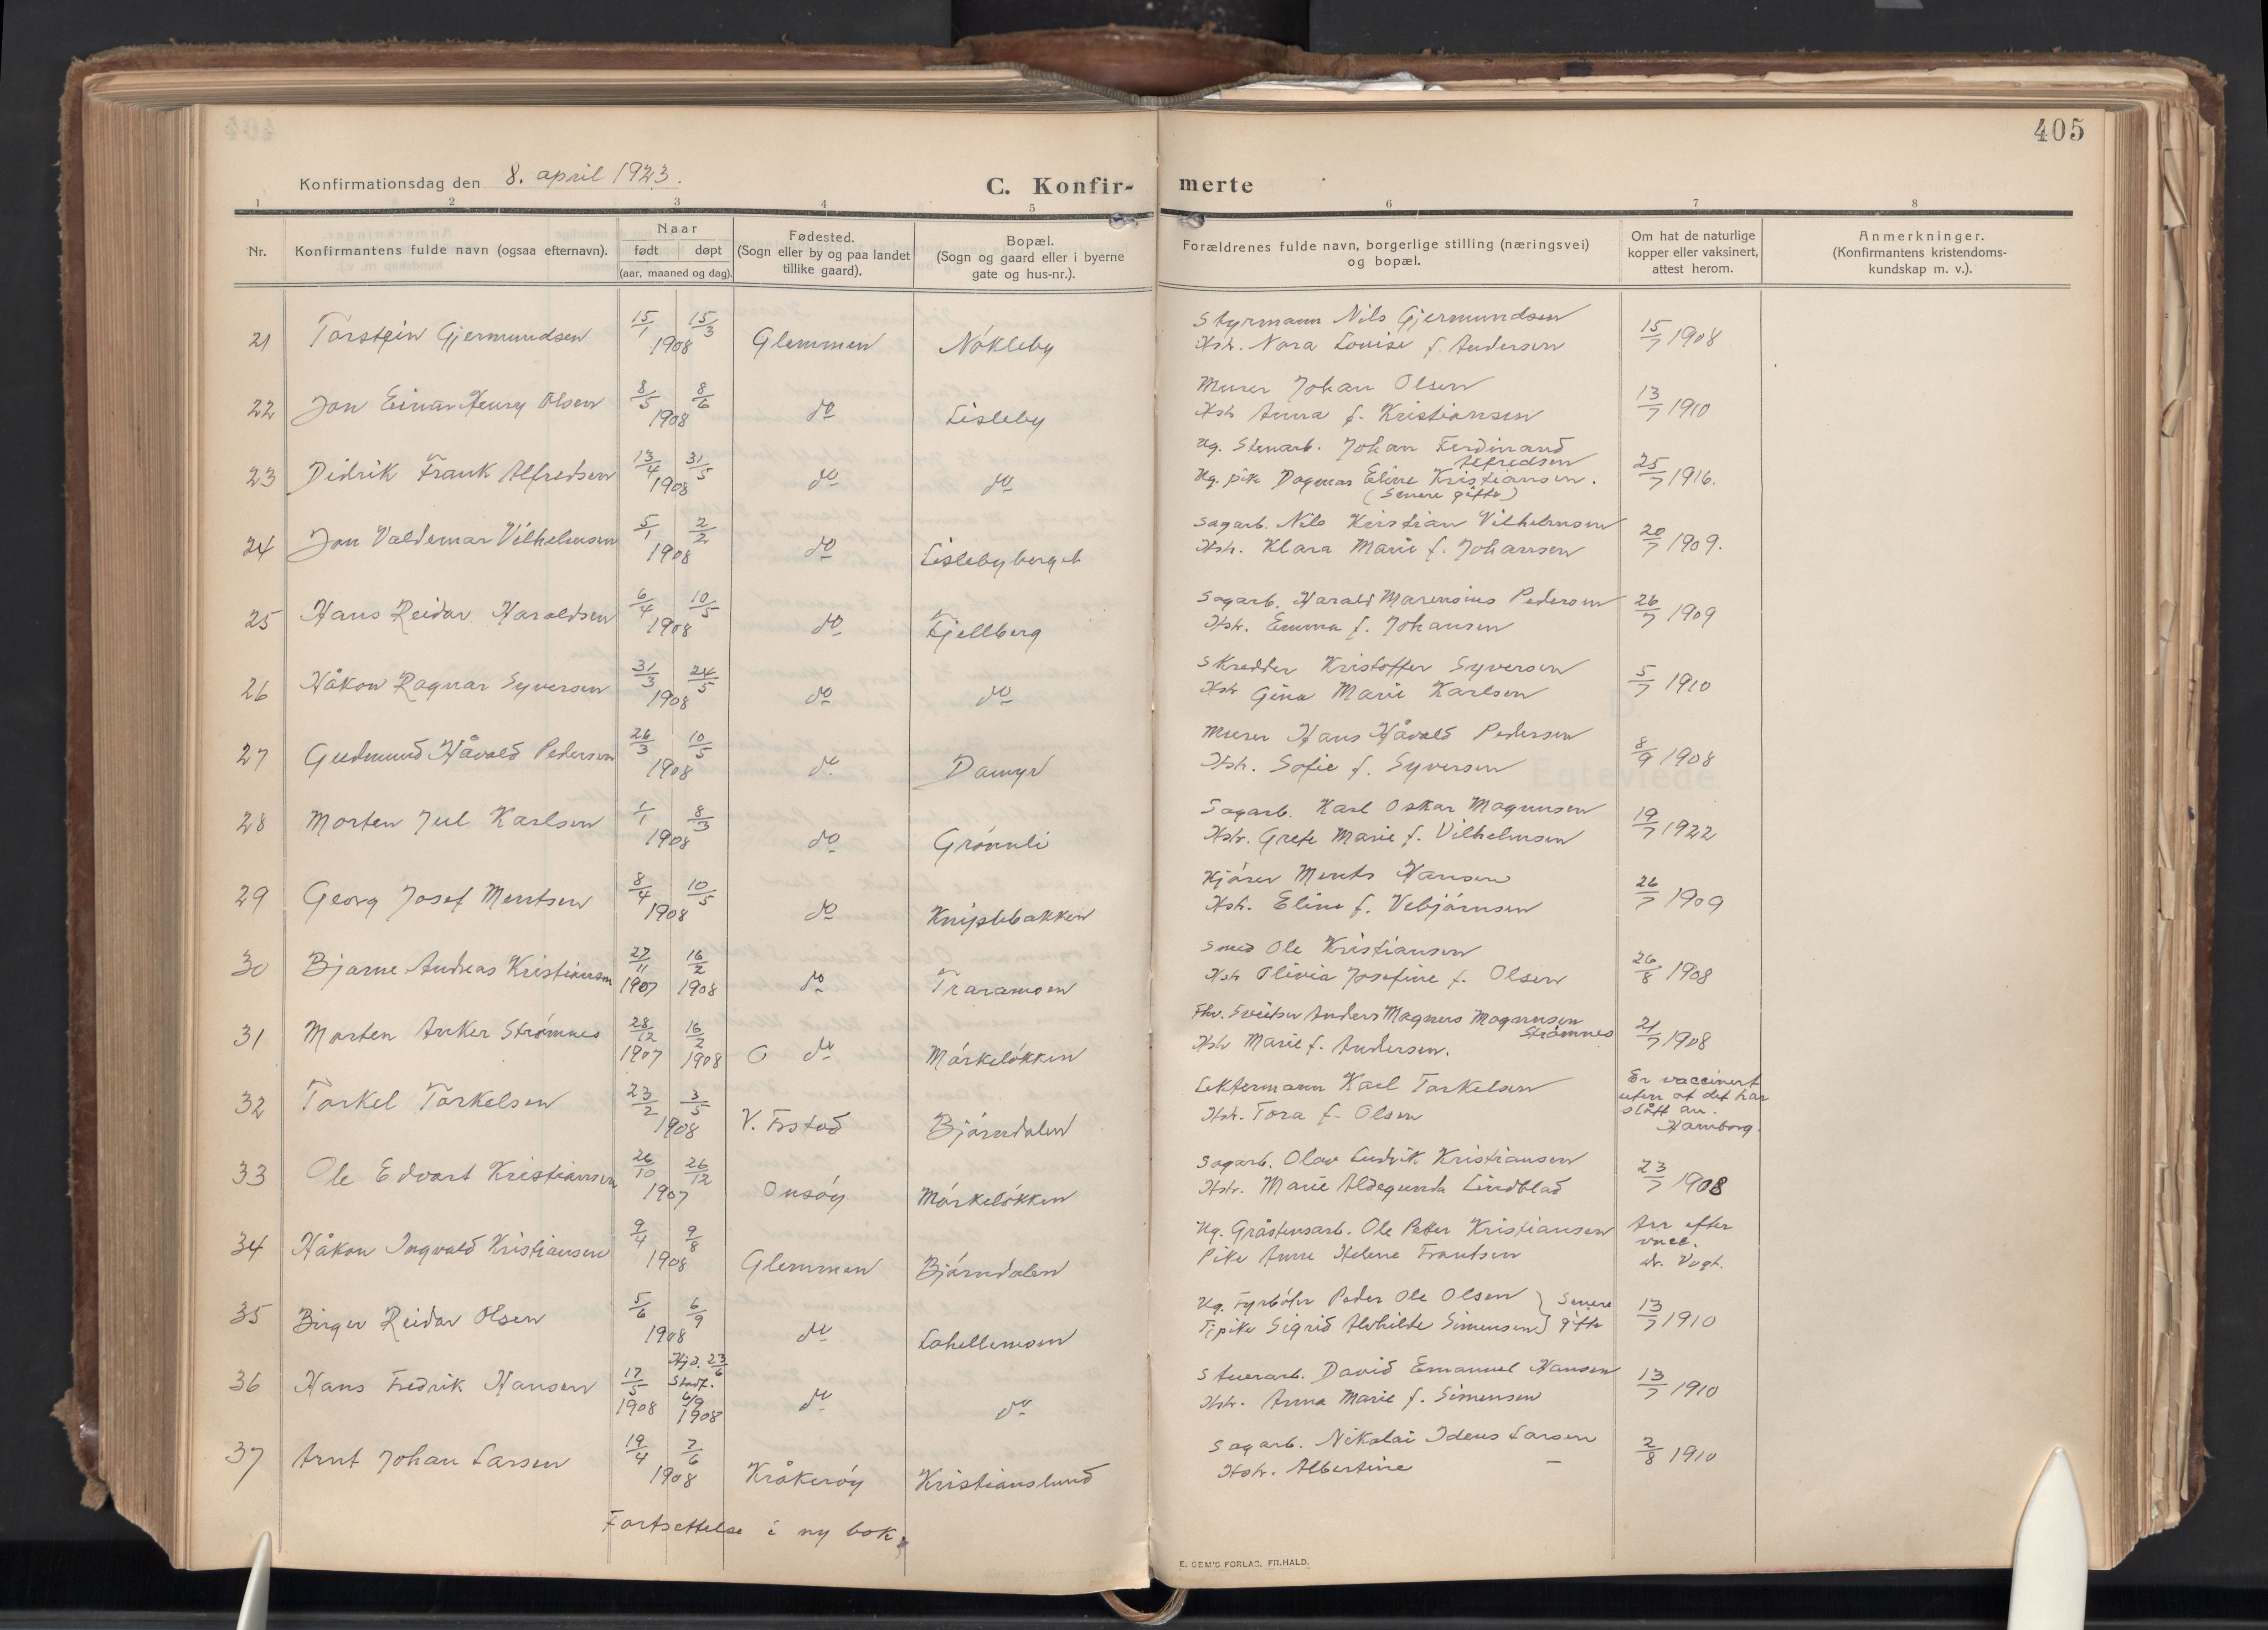 405
Konfirmationsdag den 8. april 1923.
C. Konfir-merte
1 2 3 4 5 6 7 8
Nr.
Konfirmantens fulde navn (ogsaa efternavn).
Naar
født døpt
(aar, maaned og dag).
Fødested.
(Sogn eller by og paa landet
tillike gaard).
Bopæl.
(Sogn og gaard eller i byerne
gate og hus-nr.).
Forældrenes fulde navn, borgerlige stilling (næringsvei)
og bopæl.
Om hat de naturlige
kopper eller vaksinert,
attest herom.
Anmerkninger.
(Konfirmantens kristendoms-
kundskap m. v.).
21 Torstein Gjermundsen 15/1 15/3 1908 Glemmen Nökleby
Styrmann Nils Gjermundsen
Hstr. Nora Louise f. Andersen
15/7 1908
22 Jon Einar Henry Olsen 8/5 8/6 1908 do Lisleby
Murer Johan Olsen
Hstr Anna f. Kristiansen
13/7 1910
23 Didrik Frank Alfredsen 13/4 31/5 1908 do do
Ug. Stenarb. Johan Ferdinand
Alfredsen
Ug. pike Dagmar Eline Kristiansen.
(Senere gifte)
25/7 1916.
24 Jon Valdemar Vilhelmsen 5/1 2/2 1908 do Lislebyberget
Sagarb. Nils Kristian Vilhelmsen
Hstr. Klara Marie f. Johansen
20/7 1909.
25 Hans Reidar Haraldsen 6/4 10/5 1908 do Kjellberg
Sagarb. Harald Marensius Pedersen
Hstr. Emma f. Johansen
26/7 1909
26 Håkon Ragnar Syversen 31/3 24/5 1908 do do
Skredder Kristoffer Syversen
Hstr Gina Marie Karlsen
5/7 1910
27 Gudmund Håvald Pedersen 26/3 10/5 1908 do Damyr
Murer Hans Håvald Pedersen
Hstr. Sofie f. Syversen
8/9 1908
28 Morten Juul Karlsen 1/1 8/3 1908 do Grönnli
Sagarb. Karl Oskar Magnusen
Hstr. Grete Marie f. Vilhelmsen
19/7 1922
29 Georg Josef Mentsen 8/4 10/5 1908 do Knipslebakken
Kjörer Ments Hansen
Hstr. Eline f. Vebjörnsen
26/7 1909
30 Bjarne Andreas Kristiansen 27/11 1907 16/2 1908 do Traramoen
Smed Ole Kristiansen
Hstr Olivia Josefine f. Olsen
26/8 1908
31 Morten Anker Strömnes 28/12 1907 16/2 1908 O do Mörkelökken
Anders Magnus Magnusen
Strömnes
Hstr Marie f. Andersen.
21/7 1908
32 Torkel Torkelsen 23/2 3/5 1908 V. Frstad Björndalen
Lektermann Karl Torkelsen
Hstr. Tora f. Olsen
Er vaccinert
uten at det har
slått an.
Hamborg.
33 Ole Edvart Kristiansen 26/10 26/12 1907 Onsöy Mörkelökken
Sagarb. Olav Ludvik Kristiansen
Hstr. Marie Aldegunda Lindblad
23/7 1908
34 Håkon Ingvald Kristiansen 9/4 9/8 1908 Glemmen Björndalen
Ug. Gråstensarb. Ole Petter Kristiansen
Pike Anne Helene Frantsen
Arr efter
vacc.
dr. Vogt.
35 Birger Reidar Olsen 5/6 6/9 1908 do Lahellemoen
Ug. Fyrböter Peder Ole Olsen } Senere
Tj pike Sigrid Alvhilde Simensen } gifte
13/7 1910
36 Hans Fredrik Hansen 17/5 1908 Hjd. 23/6 Stadf. 6/9 1908 do do
Stuerarb. David Emanuel Hansen
Hstr. Anna Marie f. Simensen
13/7 1910
37 Arnt Johan Larsen 19/4 7/6 1908 Kråkeröy Kristianslund
Sagarb. Nikolai Ideus Larsen
Hstr. Albertine —
2/8 1910
Fortsettelse i ny bok.
E. SEM'S FORLAG. FR.HALD.